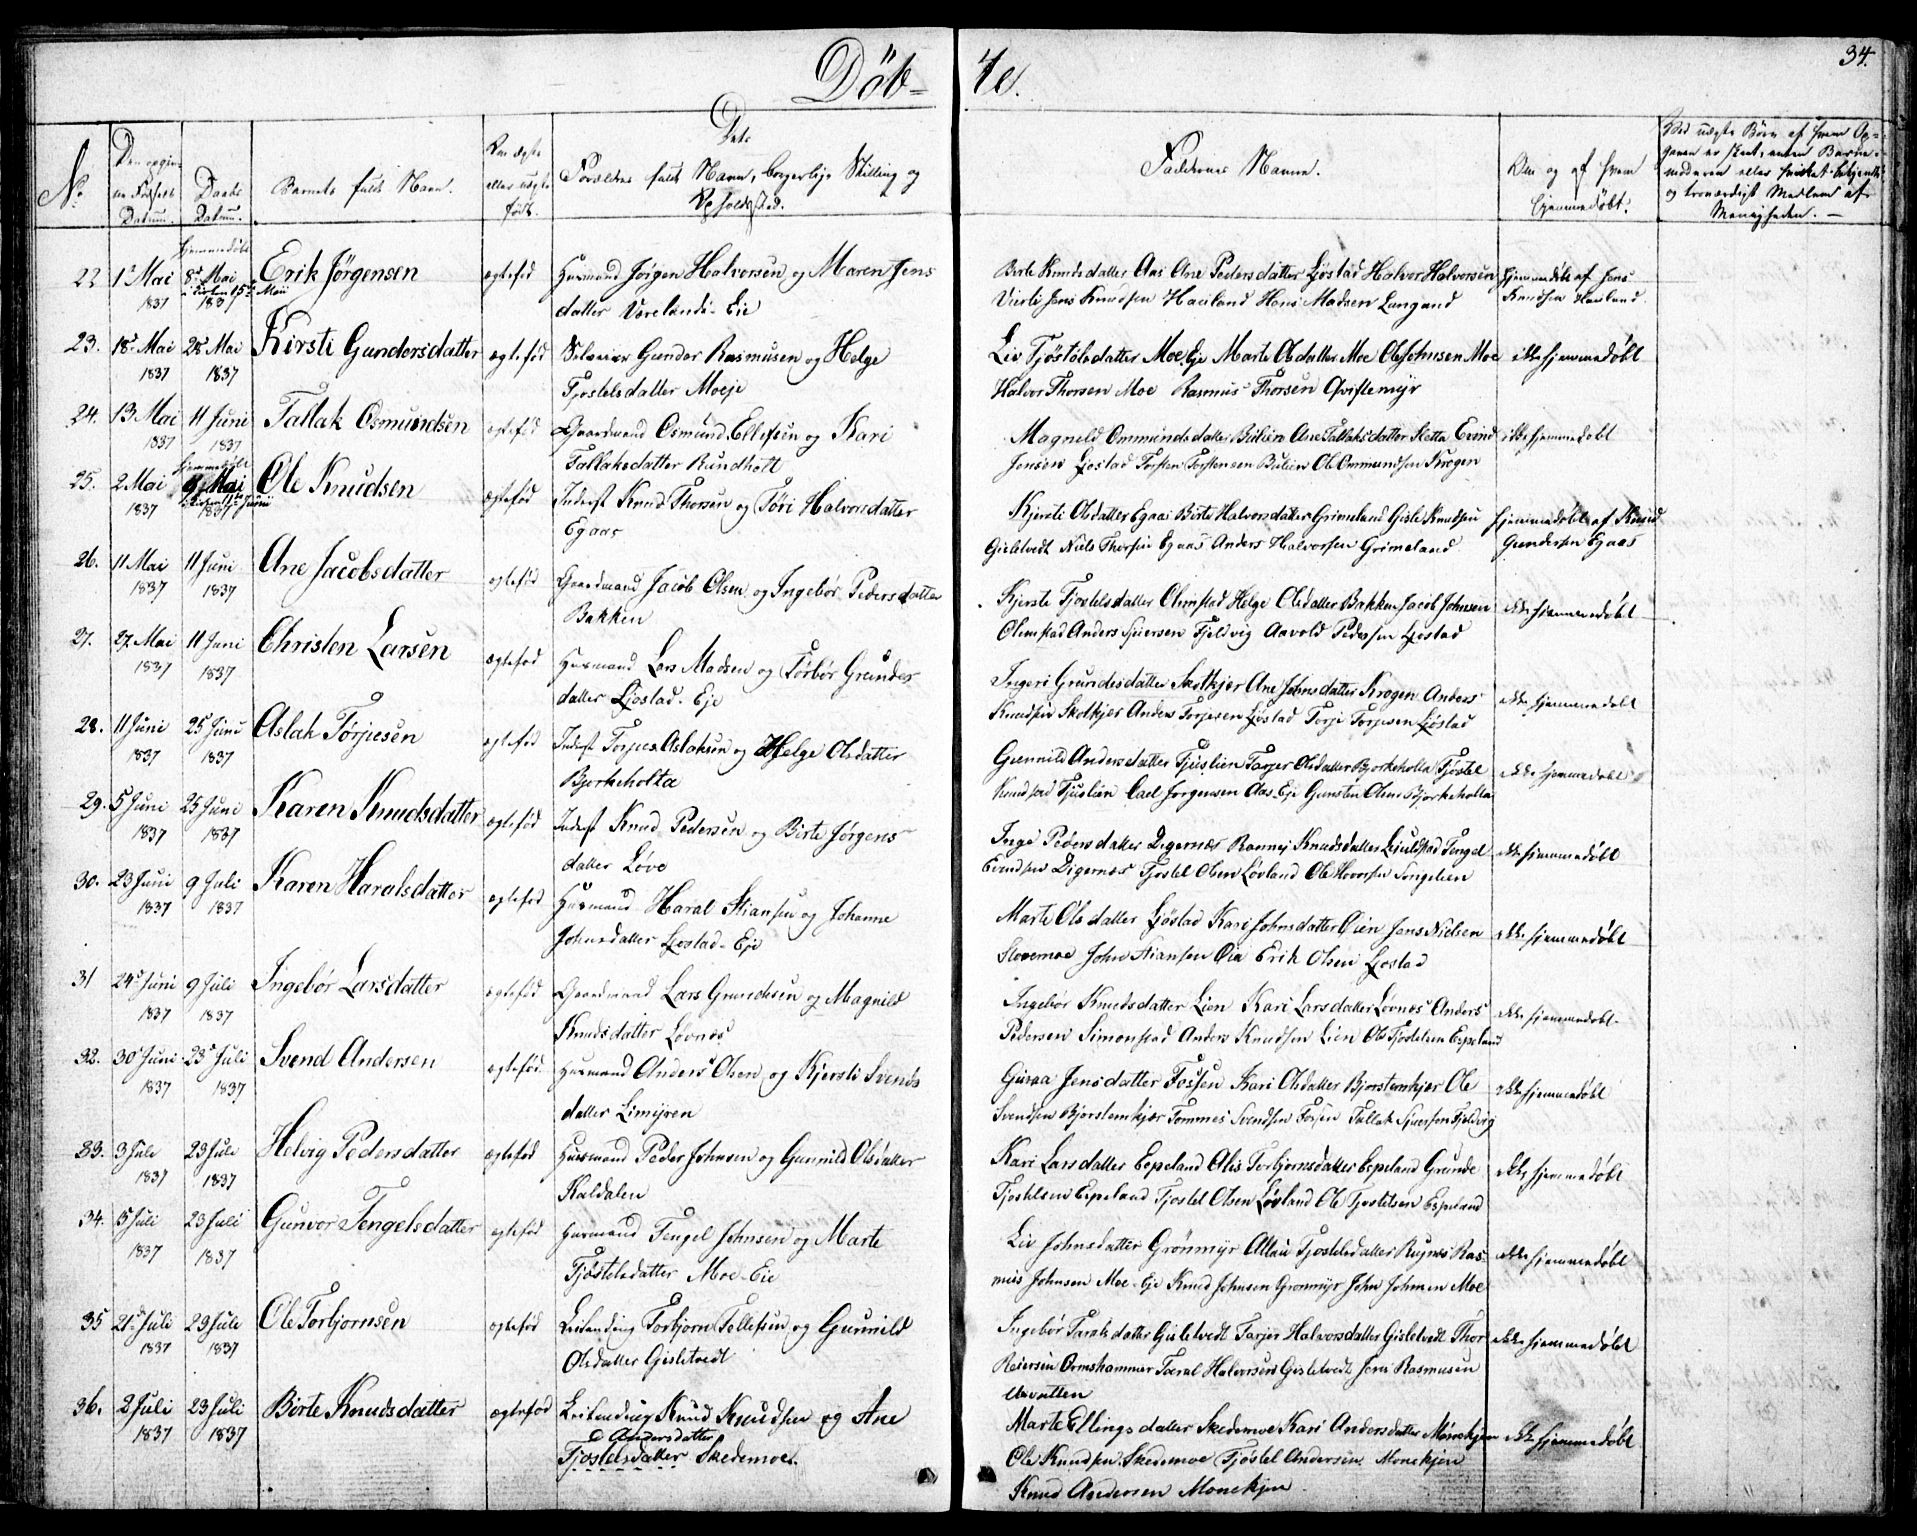 Döb- te.
34.
No.
Den opgivne Fødsels Datum.
Daabs Datum.
Barnets fulde Navn.
Om ægte eller uægte født.
Dets
Forældres fulde Navn, borgerlige Stilling og
Opholdssted.
Faddernes Navne.
Om og af hvem
hjemmedøbt.
22 1ste Mai 1837 hjemmedøbt 8de Mai 1837 Erik Jörgensen ægtefød Huusmand Jörgen Halvorsen og Maren Jens
datter Vorelands-Eie
Birte Knudsdatter Aas Ane Pedersdatter Ljøstad Halvor Halvorsen hjemmedøbt af Jens
Jens Knudsen Hauland Hans Madsen Langand Knudsen Hauland
23. 18de Mai 1837 28 Mai 1837 Kirsti Gundersdatter ægtefød Selveier Gunder Rasmusen og Helge
Tjostelsdatter Moeje
Liv Tjöstölsdatter Moe Eje Marte Olsdatter Moe Ole Johnsen Moe ikke hjemmedøbt
Halvor Thorsen Moe Rasmus Thorsen Qvistemyr
24. 13 Mai 1837 11 Juni 1837 Tallak Osmundsen ægtefød Gaardmand Osmund Ellefsen og Kari
Tallaksdatter Rundholt
Magnild Ommundsdatter Bülien Ane Tallaksdatter Sletta Evind ikke hjemmedøbt
Jensen Ljostad Torsten Torstensen Bulien Ole Ommundsen Krogen
25. 2 Mai 1837 hjemmedøbt Mai 1837 Ole Knudsen ægtefød Inderst Knud Thorsen og Töri Halvorsdatter
Egaas
Kjersti Olsdatter Egaas Birte Halvorsdatter Grimeland Gisle Knudsen hjemmedøbt af Knud
Gisletvedt Niels Thorsen Egaas Anders Halvorsen Grimeland Gundersen Egaas
26. 11 Mai 1837 11 Juni 1837 Ane Jacobsdatter ægtefød Gaardmand Jacob Olsen og Ingebör Pedersdatter
Bakken
Kjerste Tjostelsdatter Olimstad Helge Olsdatter Bakken Jacob Johnsen ikke hjemmedøbt
Olimstad Anders Sjversen Fjeldvig Aavold Pedersen Ljostad
27. 27 Mai 1837 11 Juni 1837 Christen Larsen ægtefød Huusmand Lars Madsen og Törbör Grundes
datter Ljostad-Eje
Ingeri Grundesdatter Skolkjer Ane Johnsdatter Krogen Anders ikke hjemmedøbt
Knudsen Skolkjer Anders Torjesen Ljöstad Torje Torjesen Ljöstad
28. 11 Juni 1837 25 Juni 1837 Aslak Törjiesen ægtefød Inderst Torjus Aslaksen og Helge Olsdatter
Bjorkeholta
Gunnild Andersdatter Tjuslien Tarjer Olsdatter Bjorkeholta Tjöstel ikke hjemmedøbt
Knudsen Tjuslien Carl Jorgensen Aas-Eje Gunsten Olsen Bjorkeholta
29. 5 Juni 1837 25 Juni 1837 Karen Knudsdatter ægtefød Inderst Knud Pedersen og Birte Jörgens
datter Löve
Inge Pedersdatter Digernæs Ronnej Knudsdatter Tengel ikke hjemmedøbt
Evindsen Digernæs Tjostel Olsen Lövland Ole Songelien
30. 23 Juni 1837 9 Juli 1837 Karen Haralsdatter ægtefød Huusmand Haral Stiansen og Johanne
Johnsdatter Ljostad-Eje
Marte Olsdatter Ljöstad Kari Johnsdatter Öien Jens Nielsen ikke hjemmedøbt
Slovemoe John Stiansen Öie Erik Olsen Ljostad
31 24de Juni 1837 9 Juli 1837 Ingebör Larsdatter ægtefød Gaardmand Lars Grundesen og Magnild
Knudsdatter Lovnæs
Ingebör Knudsdatter Lien Kari Larsdatter Lövnæs Anders ikke hjemmedøbt
Pedersen Simonstad Anders Knudsen Lien Ole Tjostelsen Espeland
32. 30 Juni 1837 23 Juli 1837 Svend Andersen ægtefød Huusmand Anders Olsen og Kjersti Svends
datter Limyren
Guroa Jensdatter Fossen Kari Olsdatter Bjorstemkjær Ole ikke hjemmedøbt
Svendsen Bjorstemkjær Tommes Svendsen Fossen Tallak Sjversen Fjeldvig
33. 3 Juli 1837 23 Juli 1837 Helvig Pedersdatter ægtefød Huusmand Peder Johnsen og Gunnild Olsdatter
Kaldalen
Kari Larsdatter Espeland Alis Torbjornsdatter Espeland Grunde ikke hjemmedøbt
Tjostelsen Espeland Tjostel Olsen Lövland Ole Tjostelsen Espeland
34. 5 Juli 1837 23 Juli 1837 Gunvor Tengelsdatter ægtefød Huusmand Tengel Johnsen og Marte
Tjöstelsdatter Moe-Eie
Liv Johnsdatter Grönmyr Tjostelsdatter Rejnes Ras- ikke hjemmedøbt
mus Johnsen Moe-Eje Knud Johnsen Gronmyr John Johnsen Moe
35 21de Juli 1837 23 Juli 1837 Ole Torbjornsen ægtefød Leilending Torbjorn Tollefsen og Gunnild
Olsdatter Gisletvedt
Ingebör Taralsdatter Gisletvedt Tarjer Halvorsdatter Gisletvedt Thor ikke hjemmedøbt
Reiersen Ormshammer Taral Halvorsen Gisletvedt Jens Rasmusen
Uvatten
36. 2 Juli 1837 23 Juli 1837 Birte Knudsdatter ægtefød Leilending Knud Knudsen og Ane
Andersdatter
Tjostelsdatter Skedemoe
Marte Ellingsdatter Skedemoe Kari Andersdatter Monekjen ikke hjemmedøbt
Ole Knudsen Skedemoe Tjöstel Andersen Monekjen
Knud Andersen Monekjen